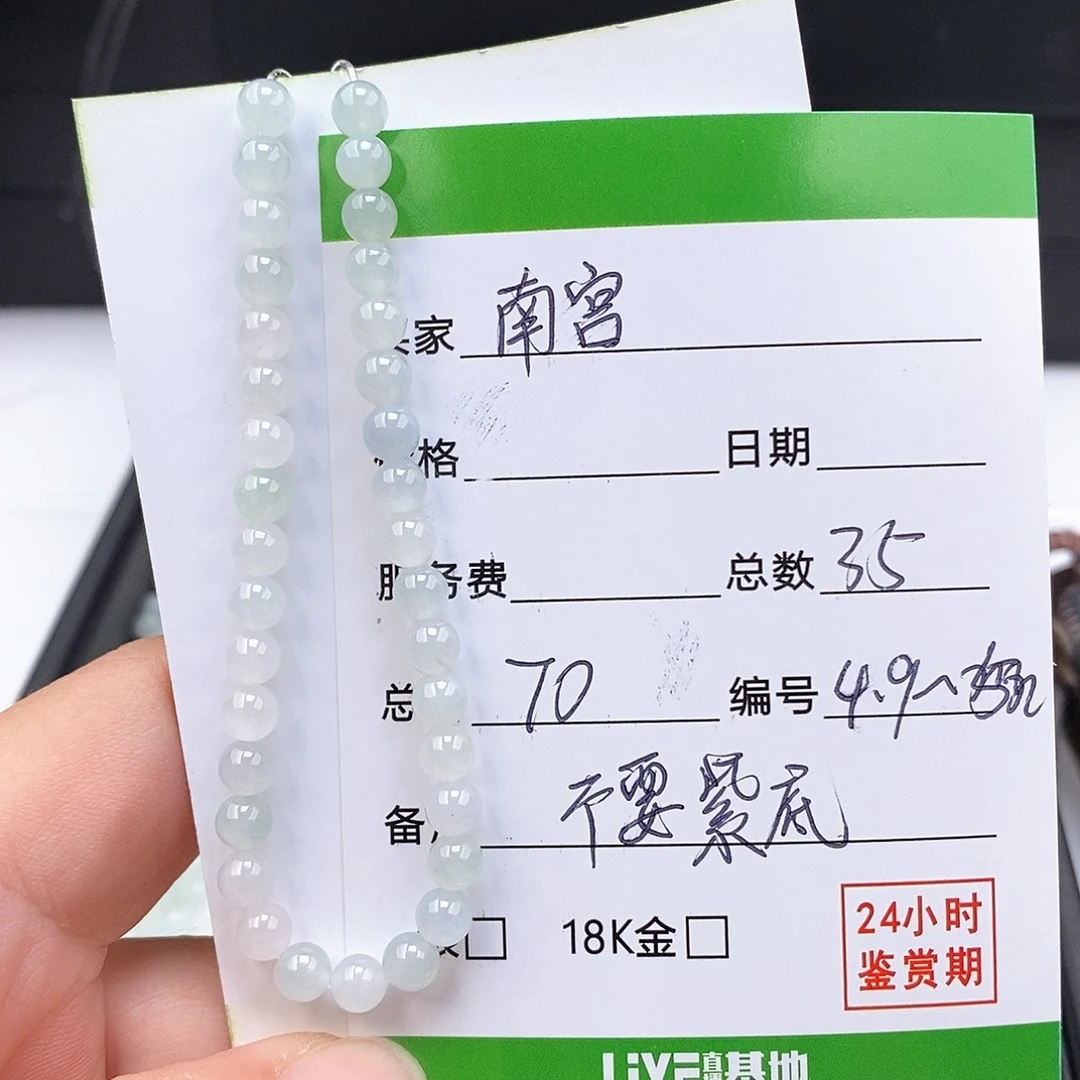 家 南宫
格 日期
服务费 总数 35
总 70 编号 4.9~
备 不要紫底
18K金
24小时
鉴赏期
LIVE直播基地